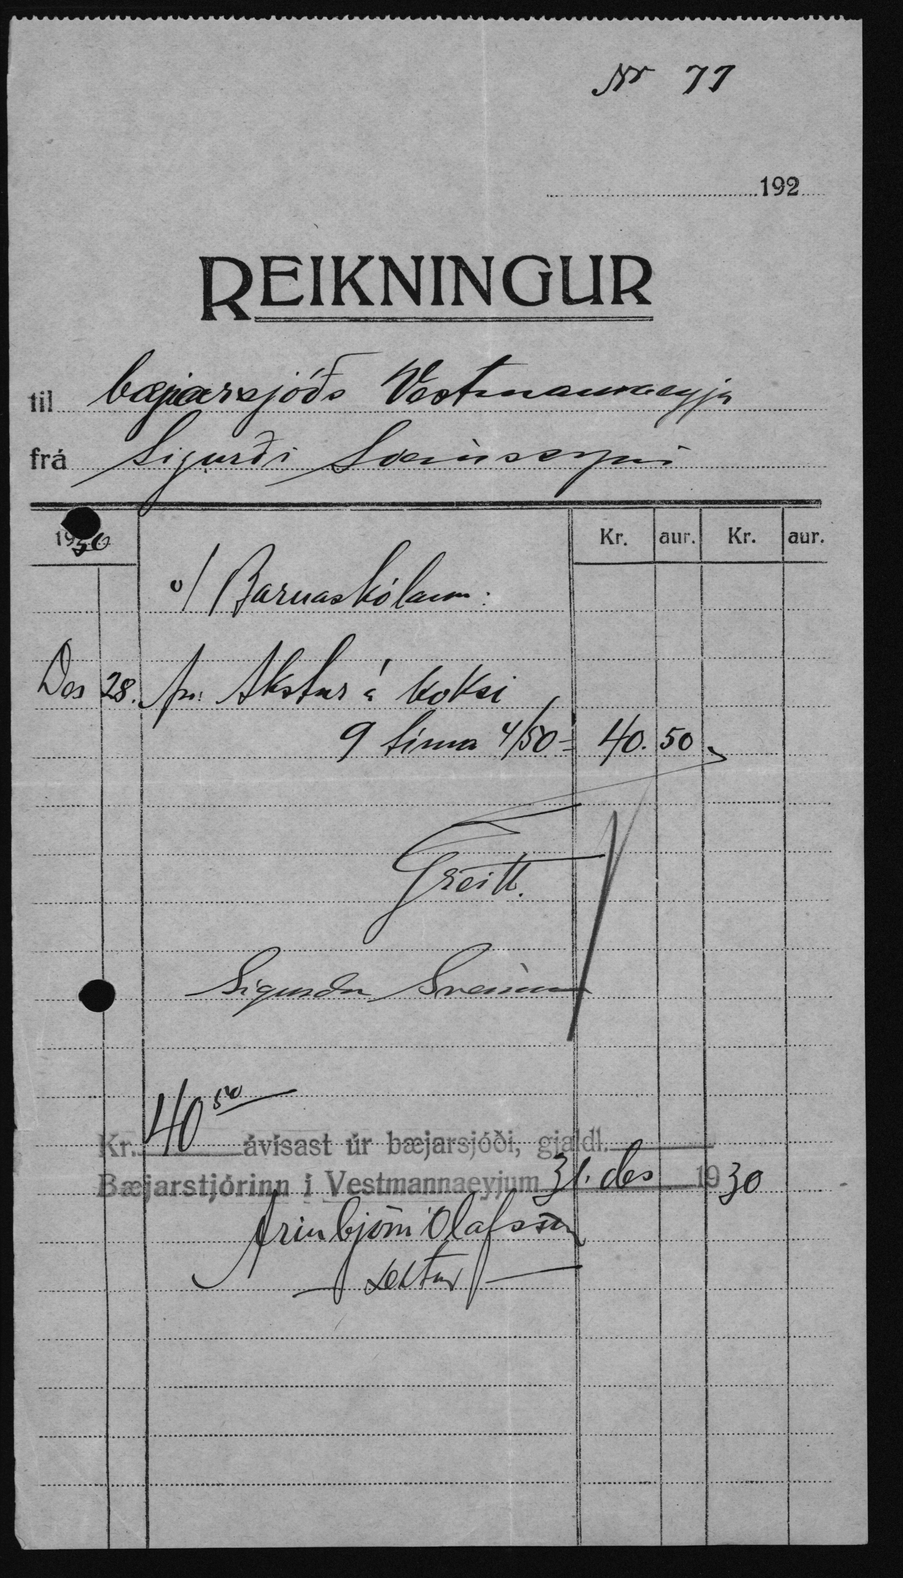 Nr 77
192
REIKNINGUR
til bæjarsjóðs Vestmannaeyja
frá Sigurði Sveinssyni
1930
Kr. aur. Kr. aur.
v/ Barnaskólann:
Des 28. fyr. Akstur á koksi
9 tíma 4/50 = 40. 50
Greitt.
Sigurður Sveinsson
Kr. 40 50 ávísast úr bæjarsjóði, gjaldl.
Bæjarstjórinn í Vestmannaeyjum 31. des 1930
Arinbjörn Olafsson
settur